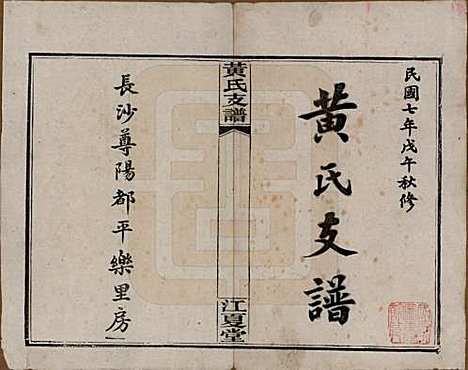 民國七年戊午秋修
黃氏支譜
黃氏支譜
江夏堂
長沙尊陽都平樂里房